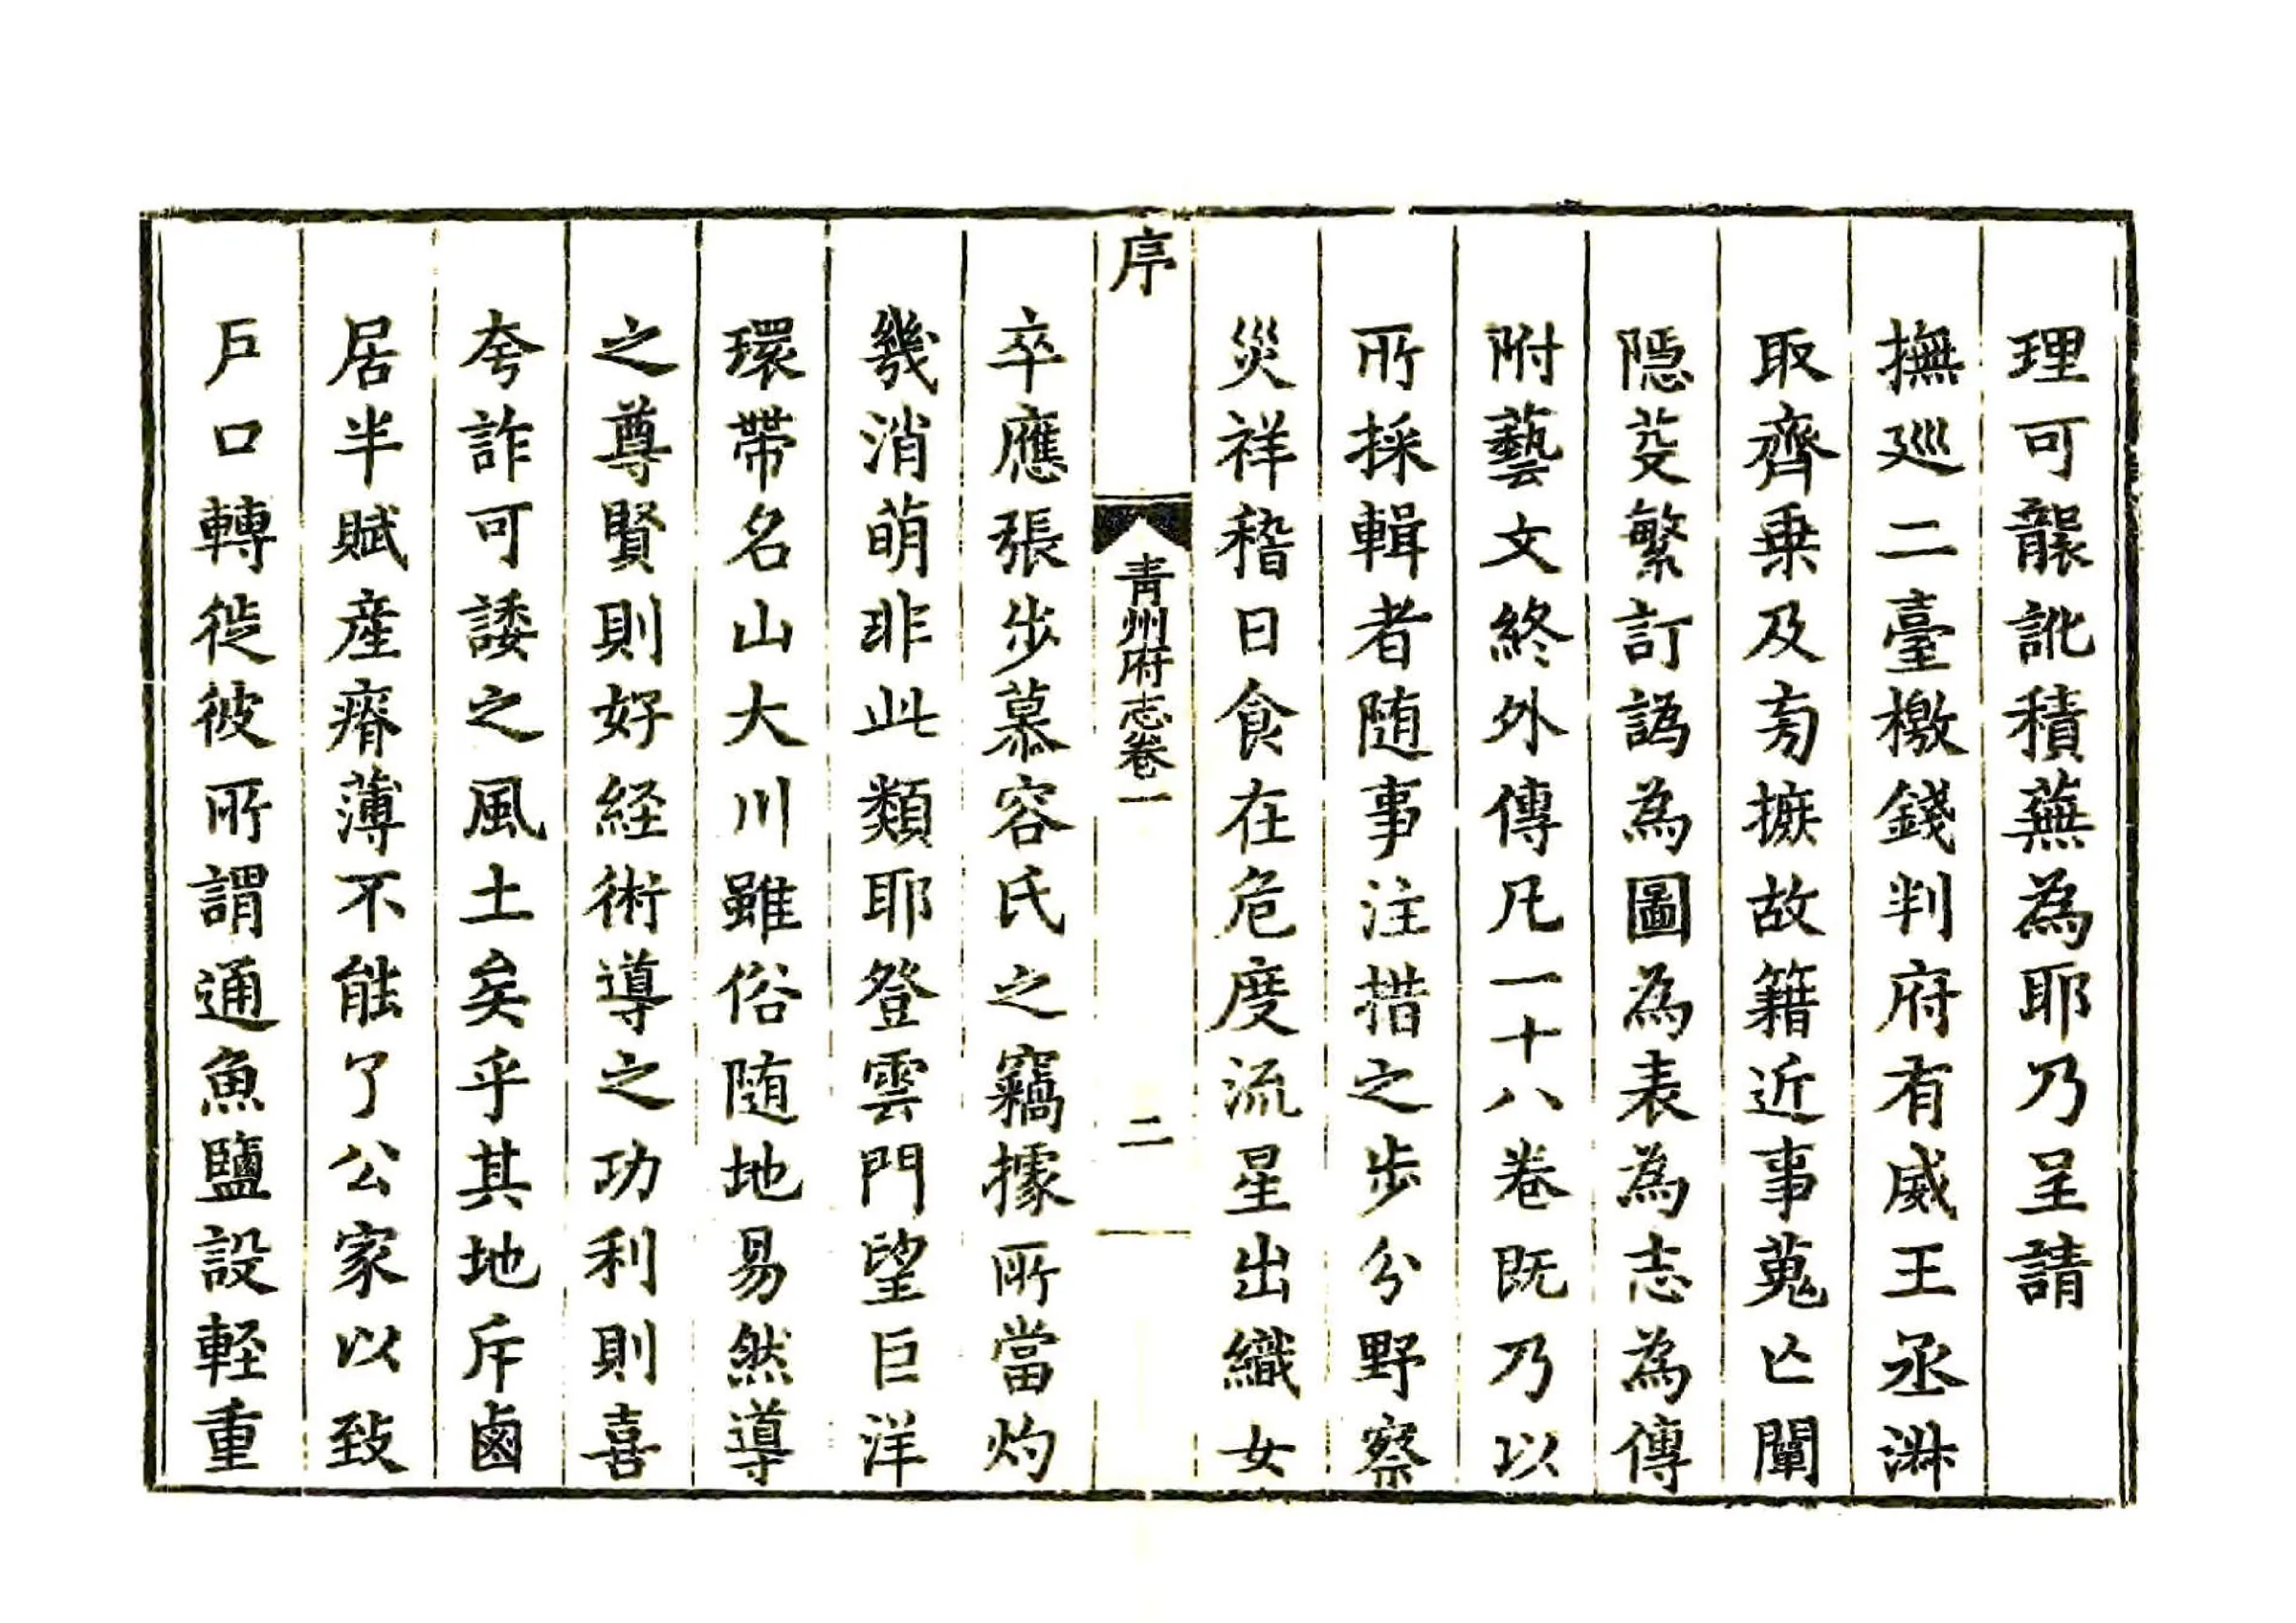 理可襲訛積蕪為耶乃呈請
撫巡二臺檄錢判府有威王丞漅
取齊乗及旁摭故籍近事蒐亡闡
隱芟繁訂譌為圖為表為志為傳
附藝文終外傳凡一十八卷既乃以
所採輯者随事注措之步分野察
災祥稽日食在危度流星出織女
序
青州府志卷一
二
卒應張步慕容氏之竊據所當灼
幾消萌非此類耶登雲門望巨洋
環帶名山大川雖俗随地易然導
之尊賢則好経術導之功利則喜
夸詐可諉之風土矣乎其地斥鹵
居半賦産瘠薄不能了公家以致
户口轉徙彼所謂通魚鹽設輕重